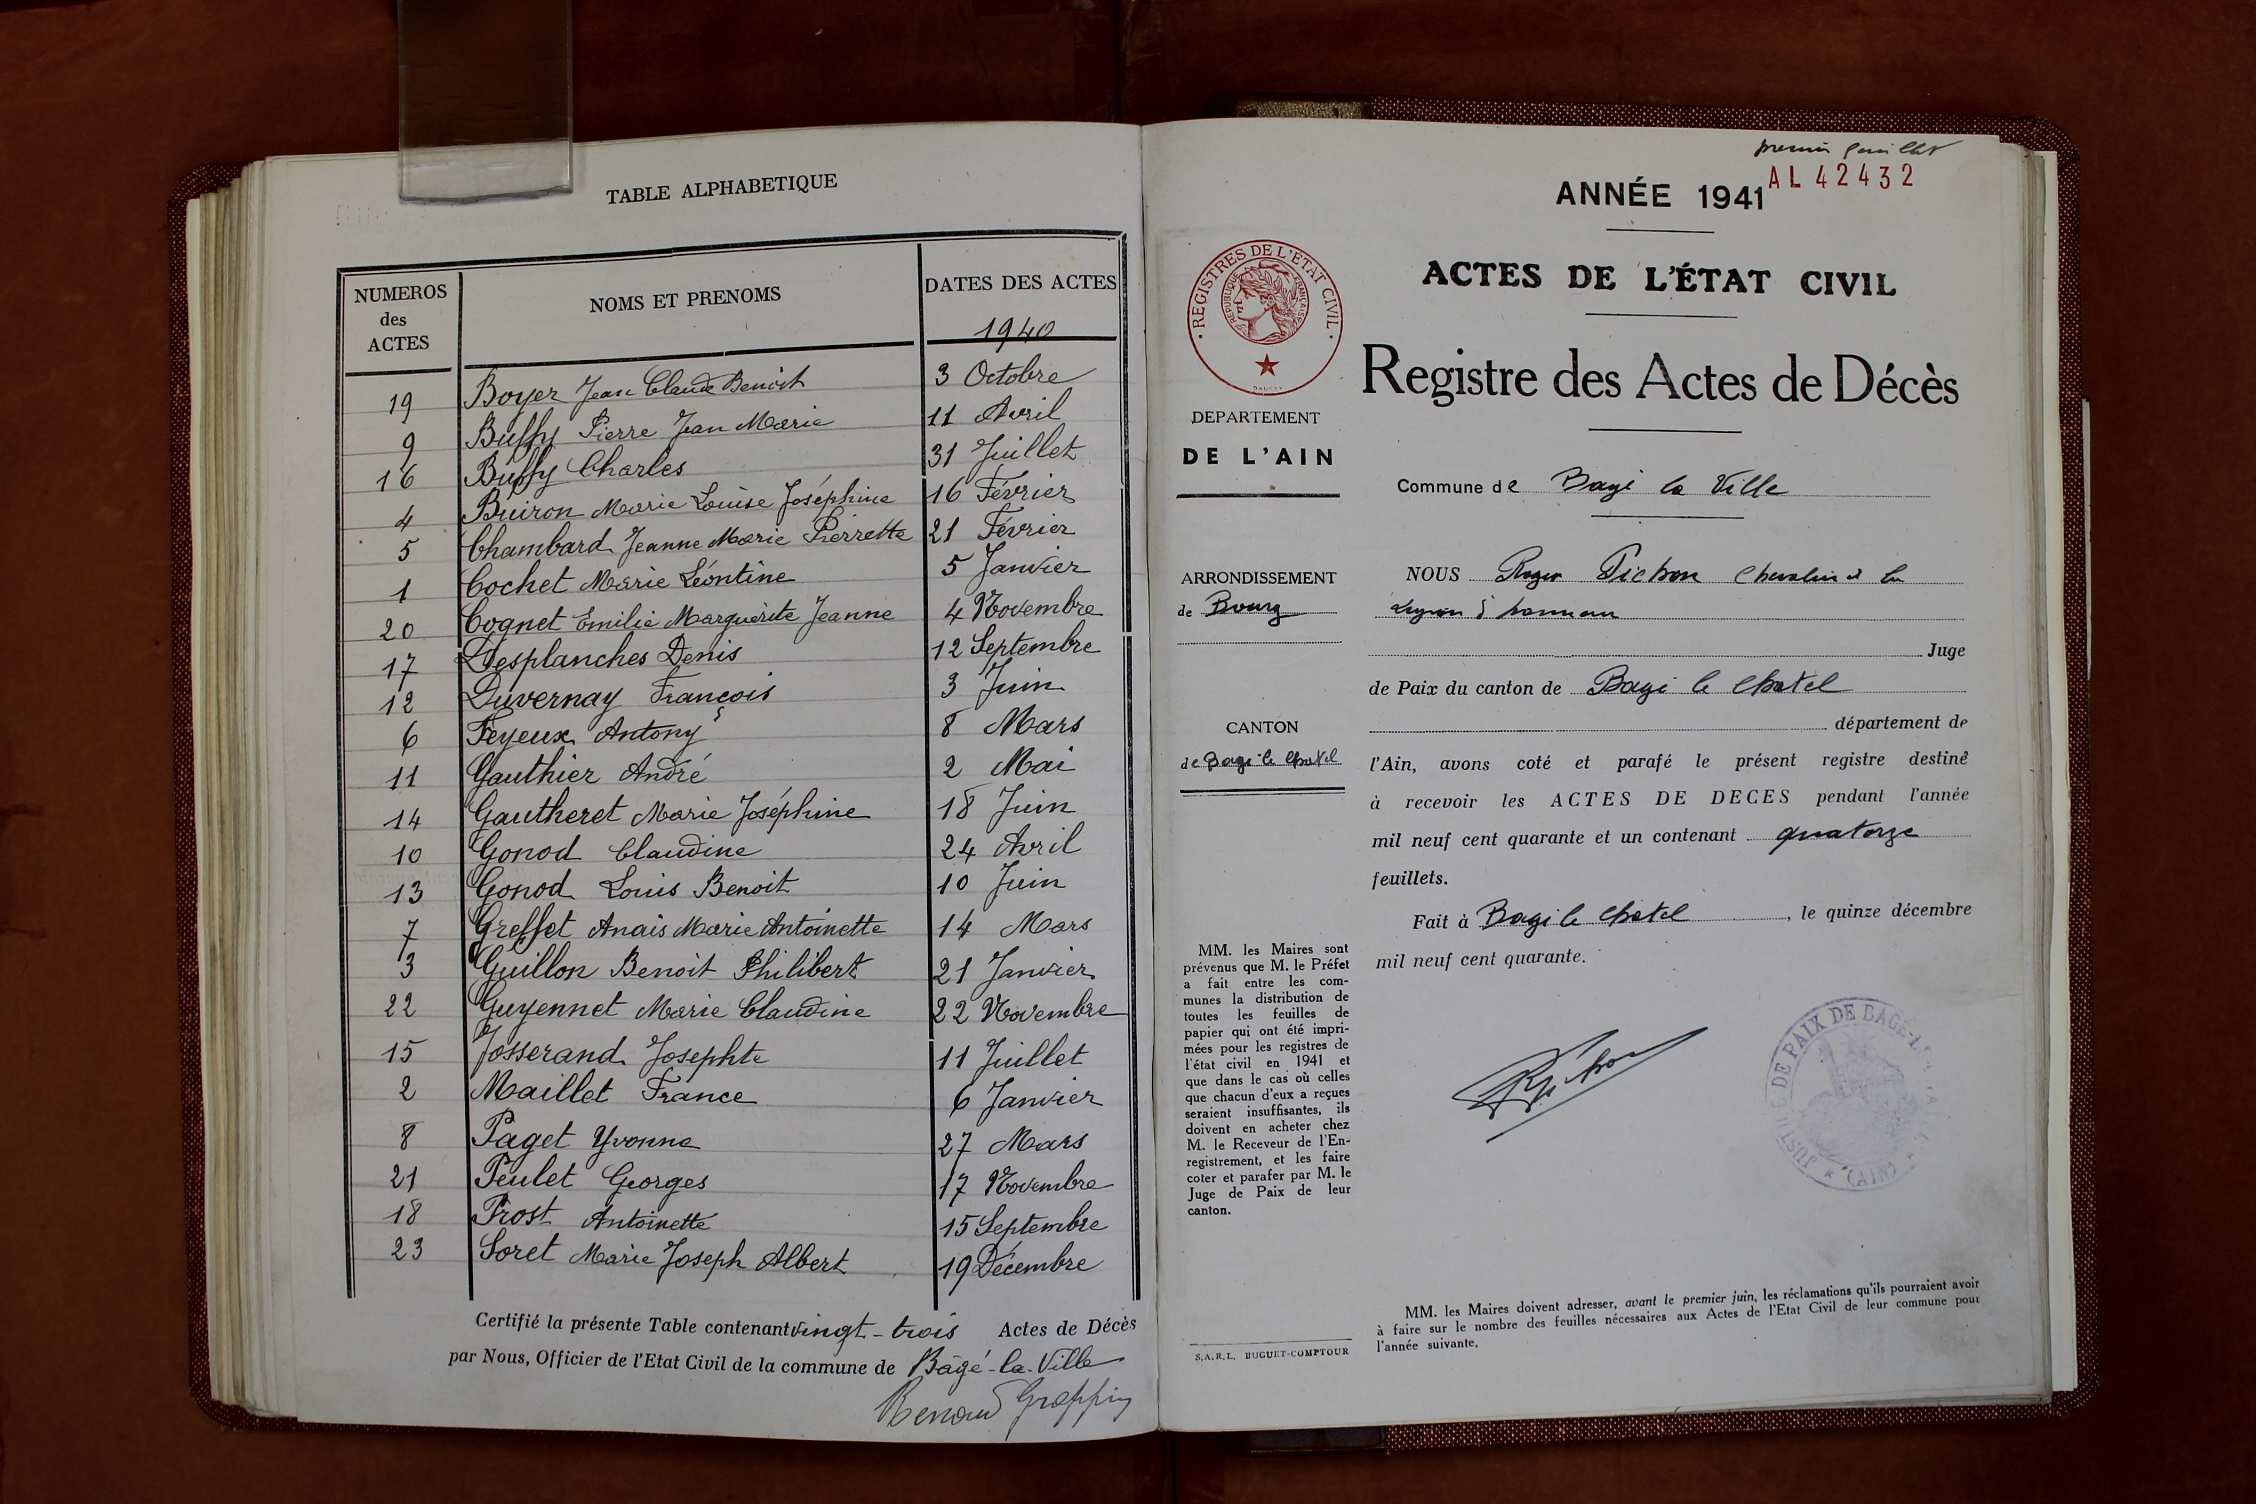 TABLE ALPHABETIQUE
NUMEROS des ACTES NOMS ET PRENOMS DATES DES ACTES
1940
19 Boyer Jean Claude Benoit 3 Octobre
9 Buffy Pierre Jean Marie 11 Avril
16 Buffy Charles 31 Juillet
4 Buiron Marie Louise Joséphine 16 Février
5 Chambard Jeanne Marie Pierrette 21 Février
1 Cochet Marie Léontine 5 Janvier
20 Cognet Emilie Marguerite Jeanne 4 Novembre
17 Desplanches Denis 12 Septembre
12 Duvernay François 3 Juin
6 Feyeux Antony 8 Mars
11 Gauthier André 2 Mai
14 Gautheret Marie Joséphine 18 Juin
10 Gonod Claudine 24 Avril
13 Gonod Louis Benoit 10 Juin
7 Greffet Anaïs Marie Antoinette 14 Mars
3 Guillon Benoit Philibert 21 Janvier
22 Guyennet Marie Claudine 22 Novembre
15 Josserand Josephte 11 Juillet
2 Maillet France 6 Janvier
8 Paget Yvonne 27 Mars
21 Peulet Georges 17 Novembre
18 Prost Antoinette 15 Septembre
23 Soret Marie Joseph Albert 19 Décembre
Certifié la présente Table contenant vingt-trois Actes de Décès
par Nous, Officier de l'Etat Civil de la commune de Bâgé-la-Ville
Renoud
premier feuillet
AL 42432
ANNÉE 1941
ACTES DE L'ÉTAT CIVIL
Registre des Actes de Décès
REGISTRES DE L'ETAT CIVIL
REPUBLIQUE FRANÇAISE
DEPARTEMENT
DE L'AIN
ARRONDISSEMENT
de Bourg
CANTON
de Bagé le Chatel
MM. les Maires sont
prévenus que M. le Préfet
a fait entre les com-
munes la distribution de
toutes les feuilles de
papier qui ont été impri-
mées pour les registres de
l'état civil en 1941 et
que dans le cas où celles
que chacun d'eux a reçues
seraient insuffisantes, ils
doivent en acheter chez
M. le Receveur de l'En-
registrement, et les faire
coter et parafer par M. le
Juge de Paix de leur
canton.
S.A.R.L. BUGUET-COMPTOUR
Commune de Bagé la Ville
NOUS Roger Pichon Chevalier de la
Légion d'honneur
Juge
de Paix du canton de Bagé le Chatel
département de
l'Ain, avons coté et parafé le présent registre destiné
à recevoir les ACTES DE DECES pendant l'année
mil neuf cent quarante et un contenant quatorze
feuillets.
Fait à Bagé le Chatel, le quinze décembre
mil neuf cent quarante.
JUSTICE DE PAIX DE BAGÉ-LE
(AIN)
MM. les Maires doivent adresser, avant le premier juin, les réclamations qu'ils pourraient avoir
à faire sur le nombre des feuilles nécessaires aux Actes de l'Etat Civil de leur commune pour
l'année suivante.